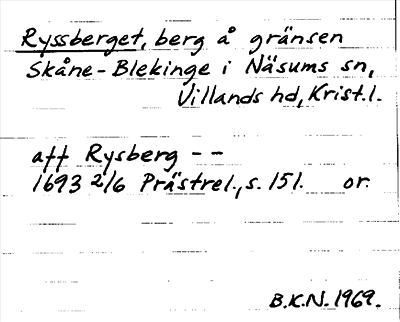 Ryssberget, berg å gränsen
Skåne-Blekinge i Näsums sn,
Villands hd, Krist.l.
aff Rysberg - -
1693 2/6 Prästrel., s. 151. or.
B.K.N. 1969.